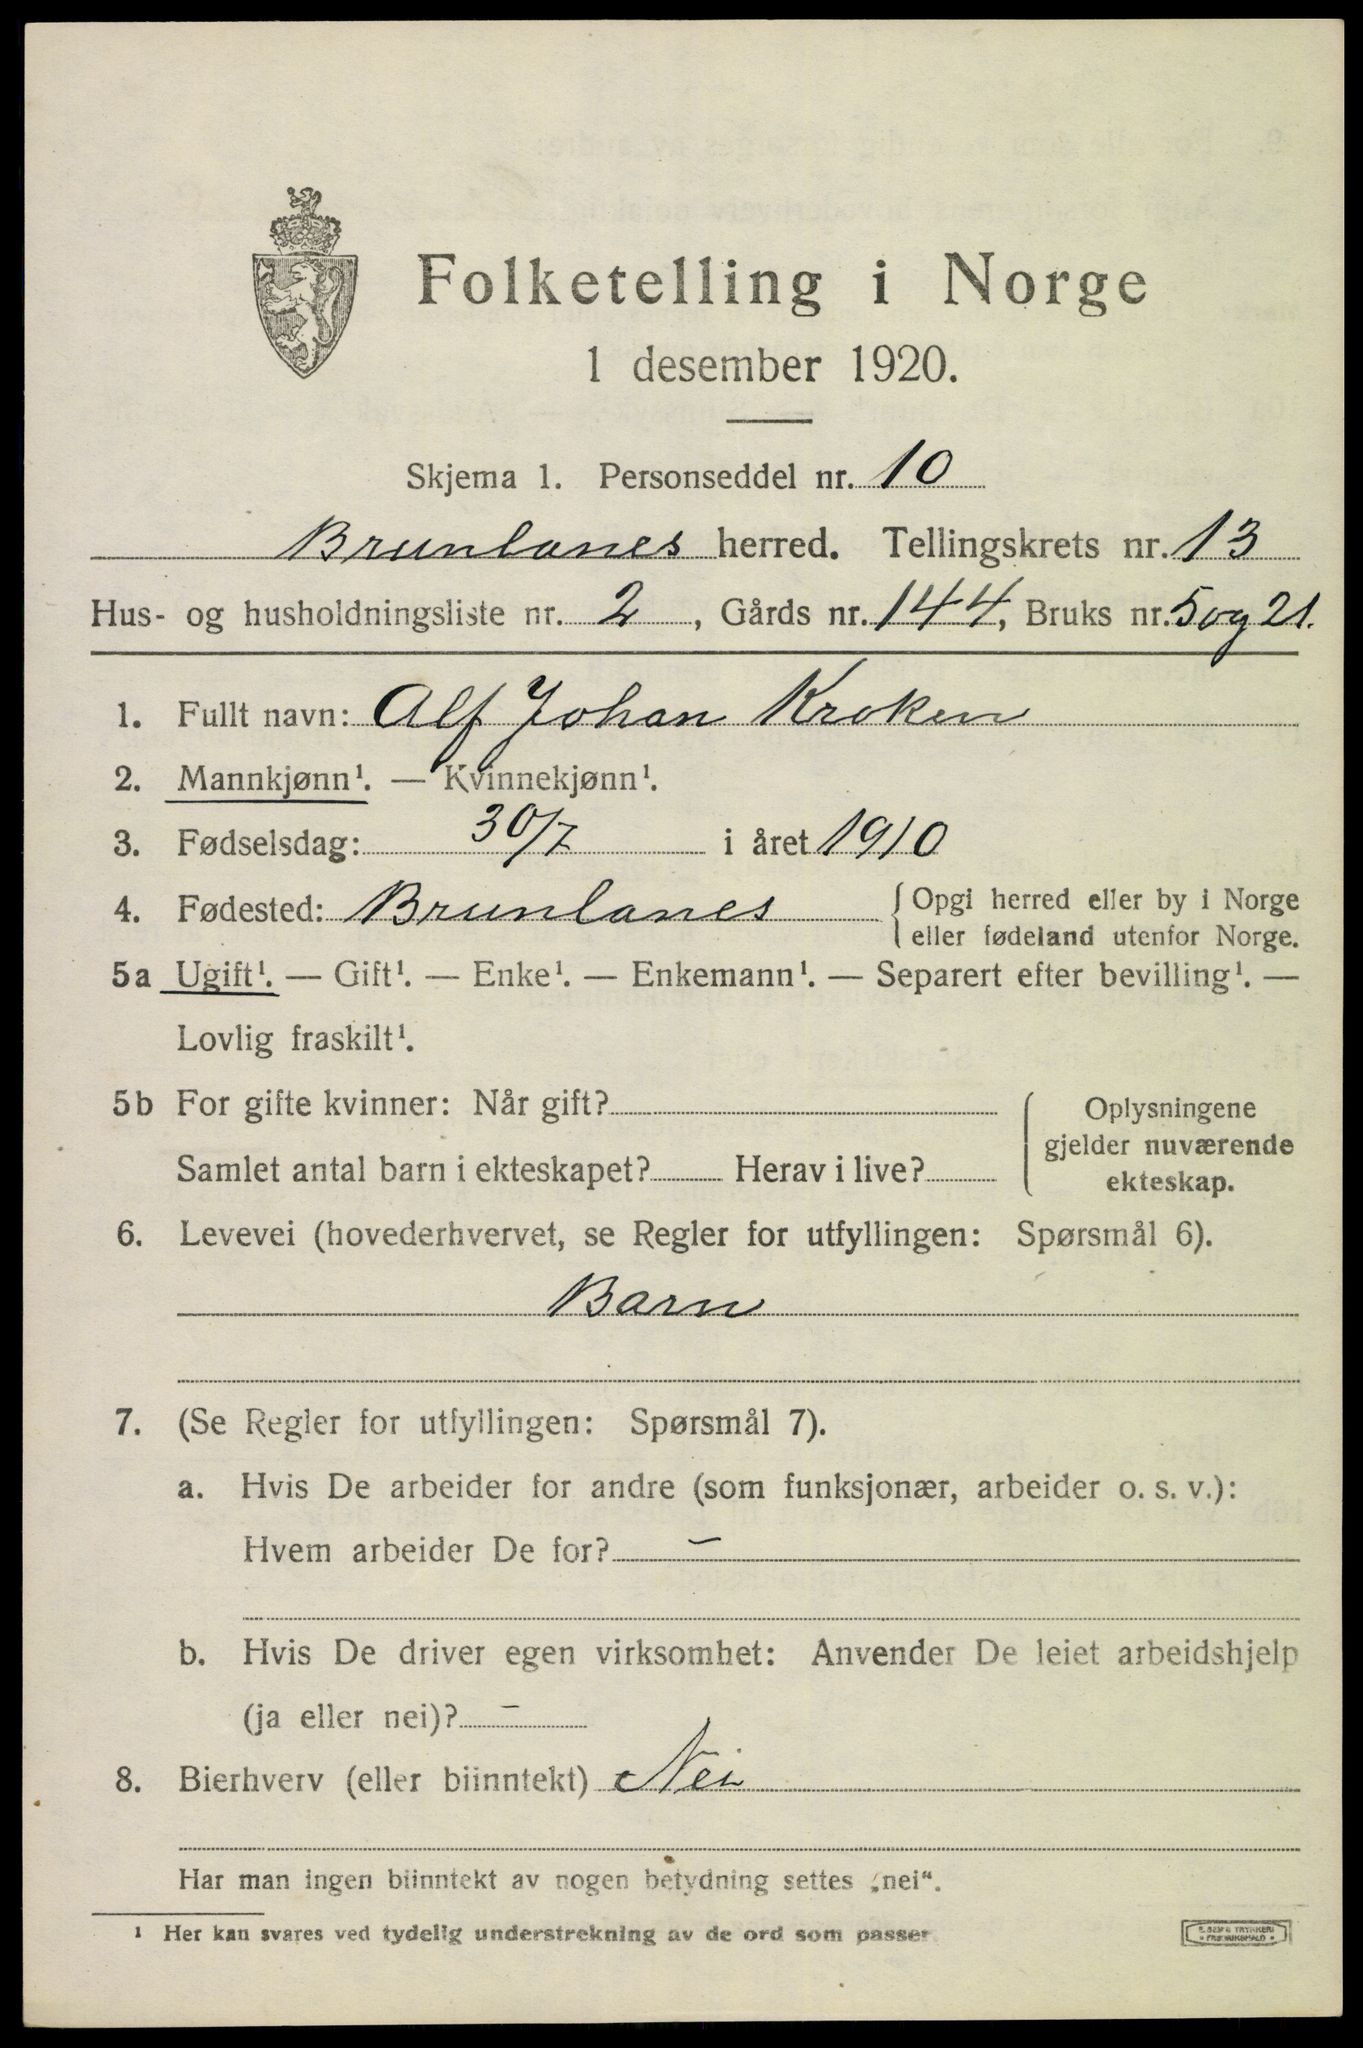 Folketelling i Norge
1 desember 1920.
Skjema 1. Personseddel nr. 10
Brunlanes herred. Tellingskrets nr. 13
Hus- og husholdningsliste nr. 2, Gårds nr. 144, Bruks nr. 5 og 21.
1. Fullt navn: Alf Johan Kroken
2. Mannkjønn¹. — Kvinnekjønn¹.
3. Fødselsdag: 30/7 i året 1910
4. Fødested: Brunlanes { Opgi herred eller by i Norge
eller fødeland utenfor Norge.
5a Ugift¹. — Gift¹. — Enke¹. — Enkemann¹. — Separert efter bevilling¹. —
Lovlig fraskilt¹.
5b For gifte kvinner: Når gift? Oplysningene
gjelder nuværende
Samlet antal barn i ekteskapet? Herav i live? ekteskap.
6. Levevei (hovederhvervet, se Regler for utfyllingen: Spørsmål 6).
Barn
7. (Se Regler for utfyllingen: Spørsmål 7).
a. Hvis De arbeider for andre (som funksjonær, arbeider o. s. v.):
Hvem arbeider De for? –
b. Hvis De driver egen virksomhet: Anvender De leiet arbeidshjelp
(ja eller nei)? –
8. Bierhverv (eller biinntekt) Nei
Har man ingen biinntekt av nogen betydning settes „nei“.
¹ Her kan svares ved tydelig understrekning av de ord som passer